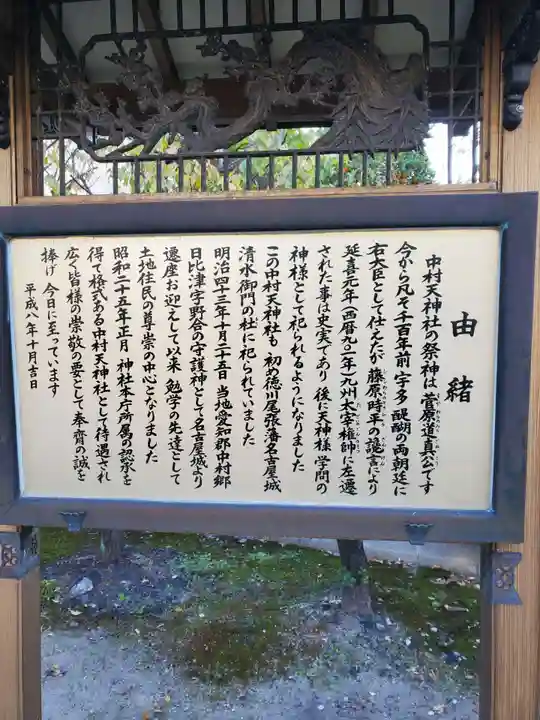 由緒
中村天神社の祭神は菅原道真公です
今から凡そ千百年前 宇多 醍醐の両朝廷に
右大臣として仕えたが 藤原時平の讒言により
延喜元年(西暦九〇一年)九州太宰権帥に左遷
された事は史実であり 後に天神様 学問の
神様として祀られるようになりました
この中村天神社も 初め徳川尾張藩名古屋城
清水御門の社に祀られていました
明治四十三年十月二十五日 当地愛知郡中村郷
日比津字野合の守護神として名古屋城より
遷座お迎えして以来 勉学の先達として
土地住民の尊崇の中心となりました
昭和二十五年正月 神社本庁所属の認承を
得て格式ある中村天神社として待遇され
広く皆様の崇敬の要として奉齋の誠を
捧げ 今日に至っています
平成八年十月吉日